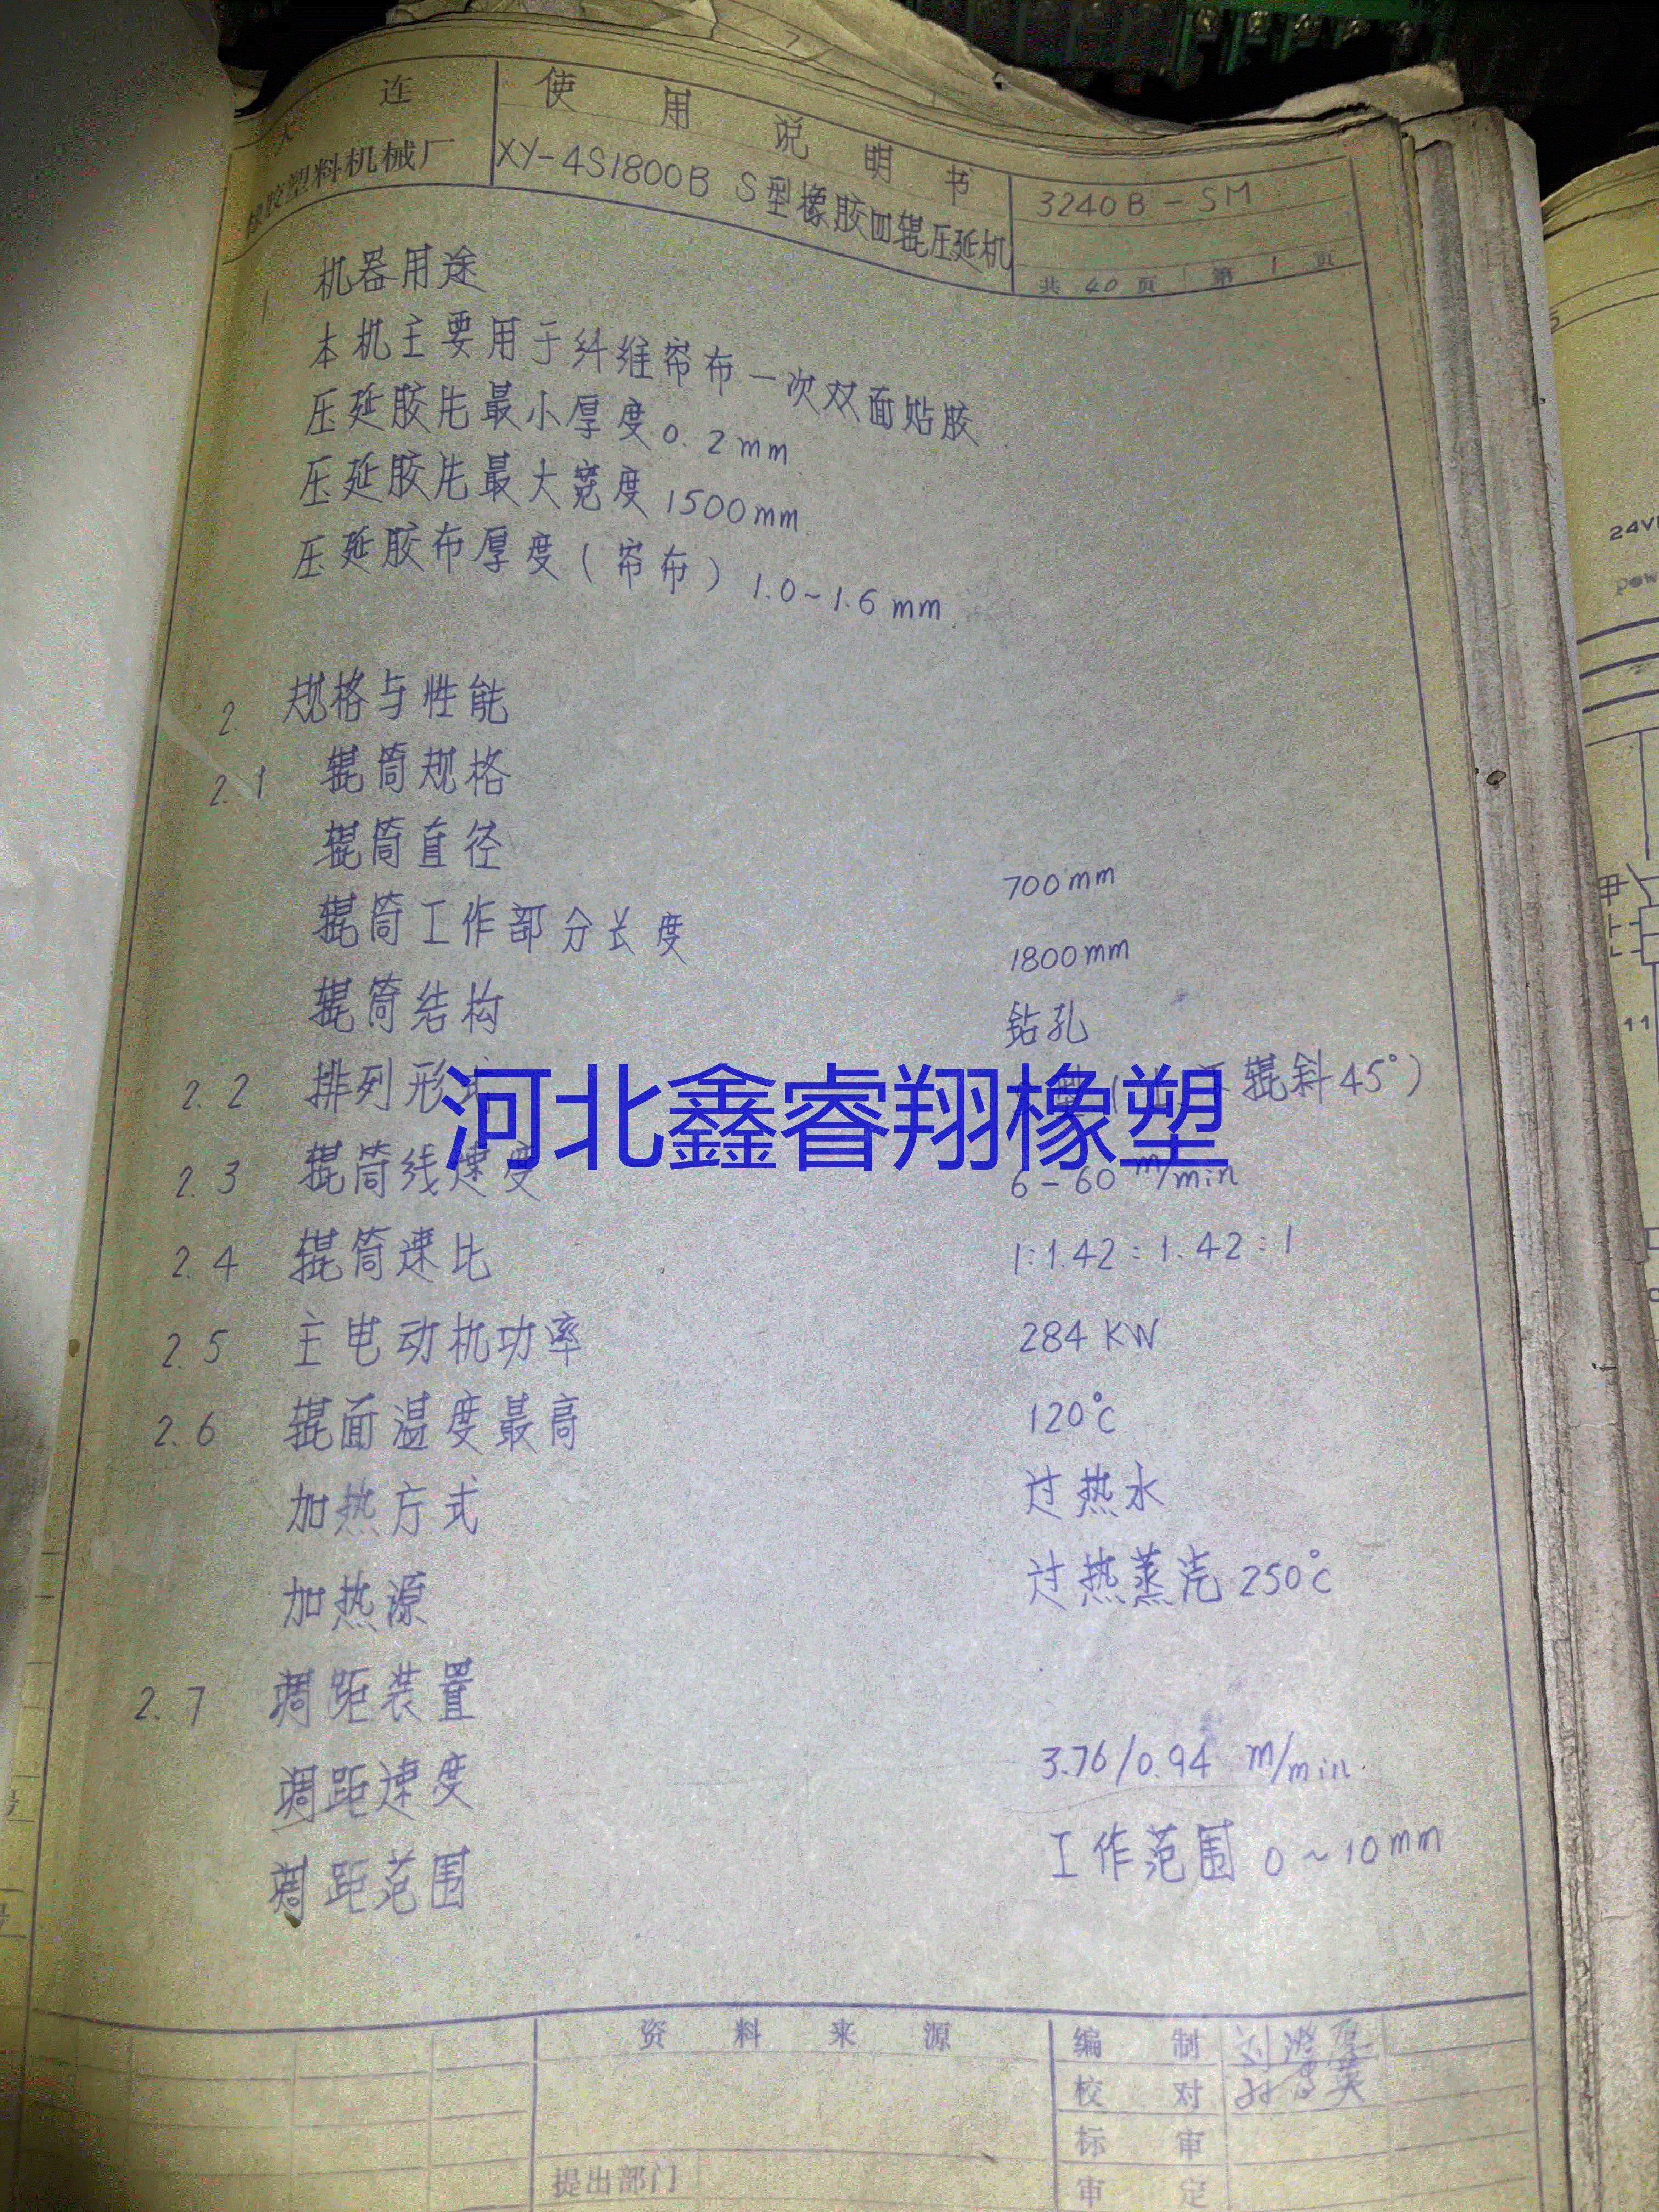 大连
橡胶塑料机械厂
使用说明书
XY-4S1800B S型橡胶四辊压延机
3240B-SM
共 40 页 第 1 页
1. 机器用途
本机主要用于纤维帘布一次双面贴胶
压延胶片最小厚度 0.2mm
压延胶片最大宽度 1500mm
压延胶布厚度(帘布) 1.0~1.6mm
2. 规格与性能
2.1 辊筒规格
辊筒直径 700mm
辊筒工作部分长度 1800mm
辊筒结构 钻孔
2.2 排列形式 型( 辊斜45°)
河北鑫睿翔橡塑
2.3 辊筒线速度 6-60 m/min
2.4 辊筒速比 1:1.42:1.42:1
2.5 主电动机功率 284KW
2.6 辊面温度最高 120℃
加热方式 过热水
加热源 过热蒸汽 250℃
2.7 调距装置
调距速度 3.76/0.94 m/min
调距范围 工作范围 0~10mm
资料来源
编制 刘
校对
标审
审定
提出部门
24V
pow
11